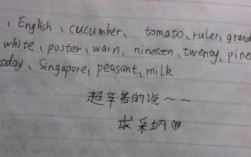 , English, cucumber, tomato, ruler, grand
white, poster, warn, nineteen, twenty, pine
oday, Singapore, peasant, milk
超辛苦的说~~
求采纳♡